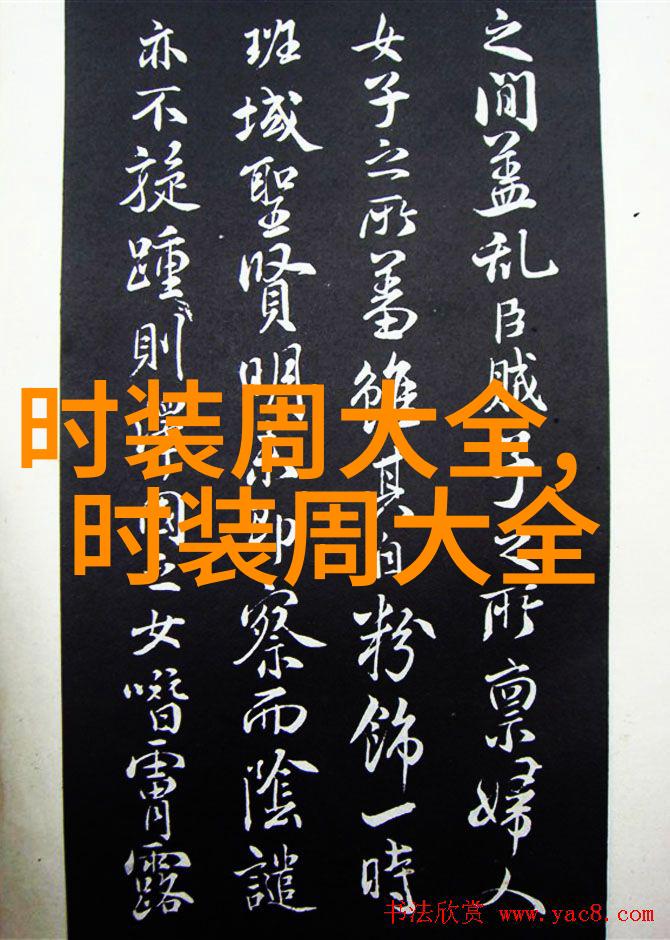 之間蓋乱臣賊子之所禀婦人
女子之所蓄雖其自粉飾一時
班域聖賢明察而陰譴
亦不旋踵則國之女噆霄露
时装周大全,
时装周大全
书法欣赏 www.yac8.com